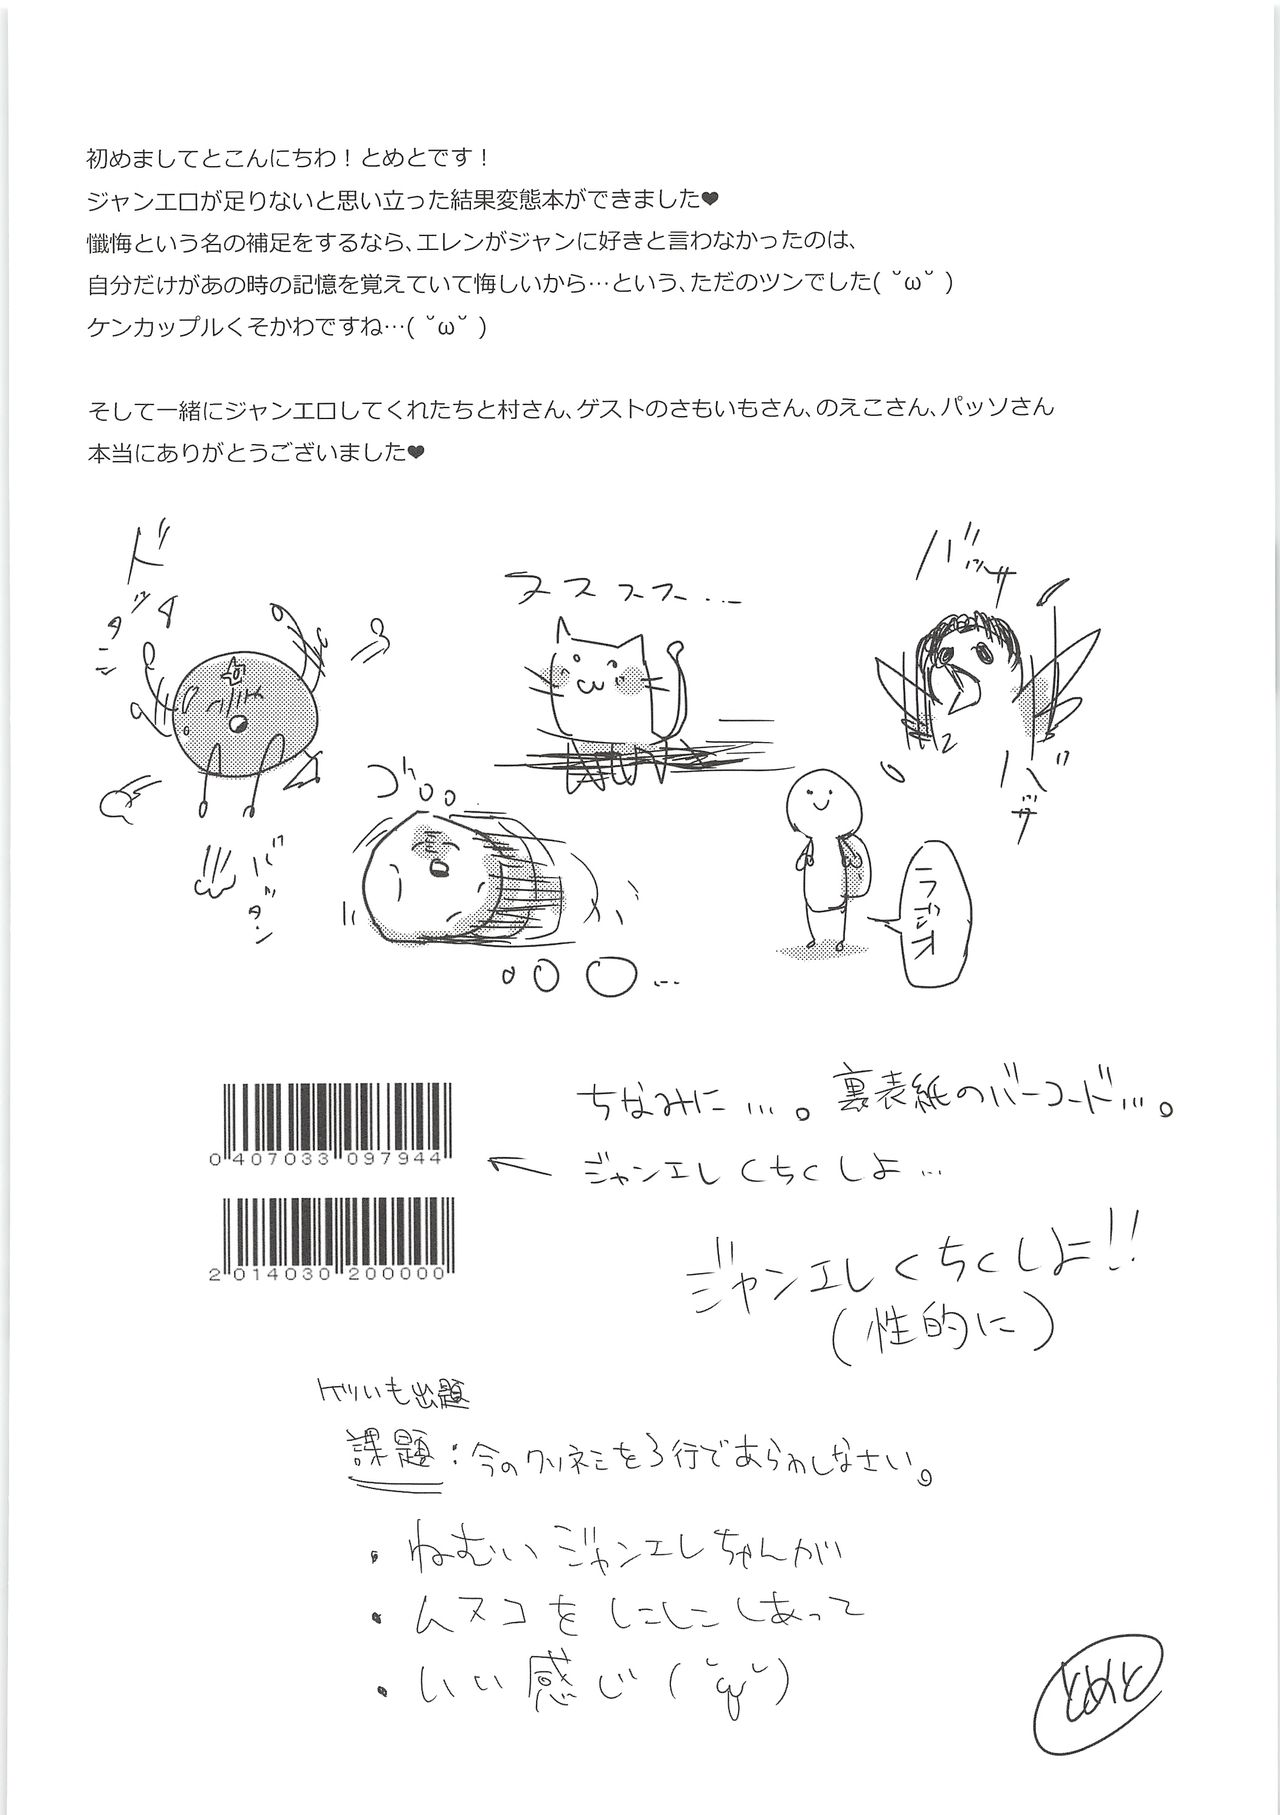 初めましてとこんにちわ！とめとです！
ジャンエロが足りないと思い立った結果変態本ができました♥
懺悔という名の補足をするなら、エレンがジャンに好きと言わなかったのは、
自分だけがあの時の記憶を覚えていて悔しいから…という、ただのツンでした( ˘ω˘ )
ケンカップルくそかわですね…( ˘ω˘ )
そして一緒にジャンエロしてくれたたちと村さん、ゲストのさもいもさん、のえこさん、パッソさん
本当にありがとうございました♥
ヌスススス...
バッサ
バサ
ラジオ
ちなみに…。裏表紙のバーコード…。
0 407033 097944
ジャンエレくちくしよ…
2 014030 200000
ジャンエレくちくしよ!!
(性的に)
出題
課題：今のクソネミを3行であらわしなさい。
・ねむいジャンエレちゃんが
・ムスコをしこしこしあって
・いい感じ(˘q˘)
とめと